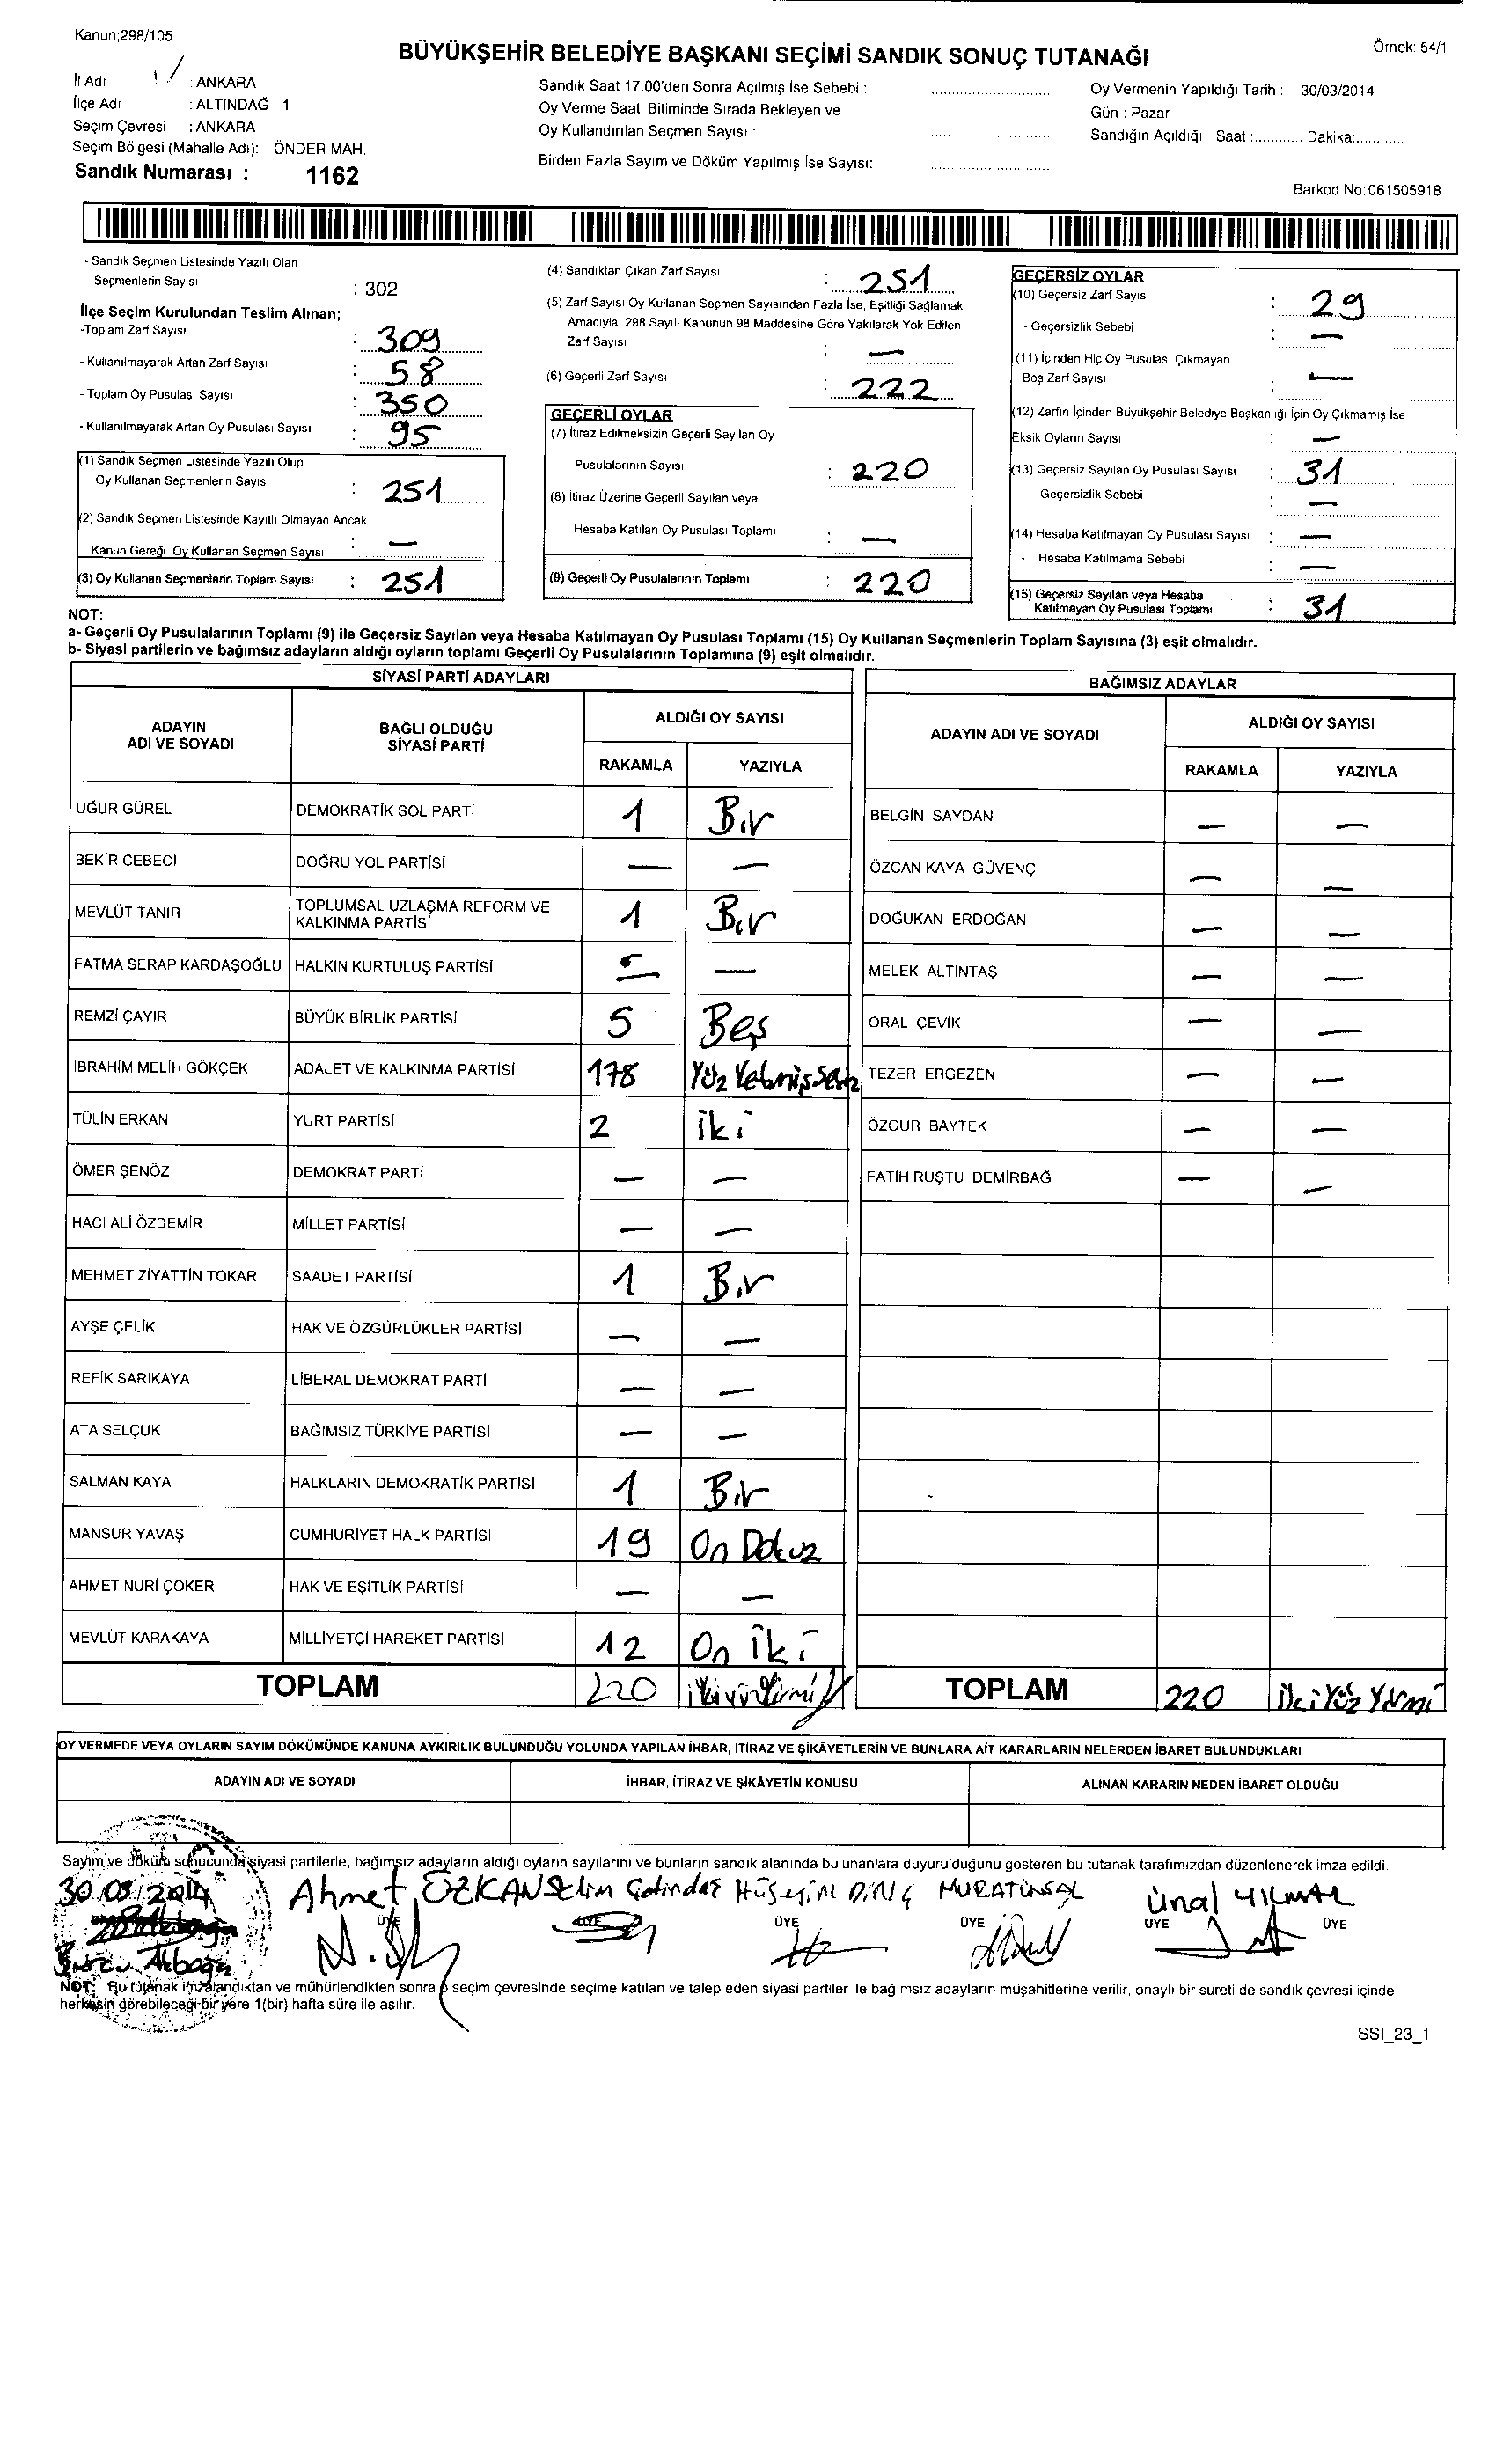 Kanun;298/105
BÜYÜKŞEHİR BELEDİYE BAŞKANI SEÇİMİ SANDIK SONUÇ TUTANAĞI
Örnek: 54/1
İl Adı : ANKARA
İlçe Adı : ALTINDAĞ - 1
Seçim Çevresi : ANKARA
Seçim Bölgesi (Mahalle Adı): ÖNDER MAH.
Sandık Numarası : 1162
Sandık Saat 17.00'den Sonra Açılmış İse Sebebi :
Oy Verme Saati Bitiminde Sırada Bekleyen ve
Oy Kullandırılan Seçmen Sayısı :
Birden Fazla Sayım ve Döküm Yapılmış İse Sayısı:
Oy Vermenin Yapıldığı Tarih : 30/03/2014
Gün : Pazar
Sandığın Açıldığı Saat :............ Dakika:............
Barkod No:061505918
- Sandık Seçmen Listesinde Yazılı Olan
Seçmenlerin Sayısı : 302
İlçe Seçim Kurulundan Teslim Alınan;
-Toplam Zarf Sayısı : 309
- Kullanılmayarak Artan Zarf Sayısı : 58
- Toplam Oy Pusulası Sayısı : 350
- Kullanılmayarak Artan Oy Pusulası Sayısı : 95
(1) Sandık Seçmen Listesinde Yazılı Olup
Oy Kullanan Seçmenlerin Sayısı : 251
(2) Sandık Seçmen Listesinde Kayıtlı Olmayan Ancak
Kanun Gereği Oy Kullanan Seçmen Sayısı : —
(3) Oy Kullanan Seçmenlerin Toplam Sayısı : 251
(4) Sandıktan Çıkan Zarf Sayısı : 251
(5) Zarf Sayısı Oy Kullanan Seçmen Sayısından Fazla İse, Eşitliği Sağlamak
Amacıyla; 298 Sayılı Kanunun 98.Maddesine Göre Yakılarak Yok Edilen
Zarf Sayısı : —
(6) Geçerli Zarf Sayısı : 222
GEÇERLİ OYLAR
(7) İtiraz Edilmeksizin Geçerli Sayılan Oy
Pusulalarının Sayısı : 220
(8) İtiraz Üzerine Geçerli Sayılan veya
Hesaba Katılan Oy Pusulası Toplamı : —
(9) Geçerli Oy Pusulalarının Toplamı : 220
GEÇERSİZ OYLAR
(10) Geçersiz Zarf Sayısı : 29
- Geçersizlik Sebebi : —
(11) İçinden Hiç Oy Pusulası Çıkmayan
Boş Zarf Sayısı : —
(12) Zarfın İçinden Büyükşehir Belediye Başkanlığı İçin Oy Çıkmamış İse
Eksik Oyların Sayısı : —
(13) Geçersiz Sayılan Oy Pusulası Sayısı : 31
- Geçersizlik Sebebi : —
(14) Hesaba Katılmayan Oy Pusulası Sayısı : —
- Hesaba Katılmama Sebebi : —
(15) Geçersiz Sayılan veya Hesaba
Katılmayan Oy Pusulası Toplamı : 31
NOT:
a- Geçerli Oy Pusulalarının Toplamı (9) ile Geçersiz Sayılan veya Hesaba Katılmayan Oy Pusulası Toplamı (15) Oy Kullanan Seçmenlerin Toplam Sayısına (3) eşit olmalıdır.
b- Siyasi partilerin ve bağımsız adayların aldığı oyların toplamı Geçerli Oy Pusulalarının Toplamına (9) eşit olmalıdır.
SİYASİ PARTİ ADAYLARI
ADAYIN ADI VE SOYADI
BAĞLI OLDUĞU SİYASİ PARTİ
ALDIĞI OY SAYISI
RAKAMLA YAZIYLA
UĞUR GÜREL DEMOKRATİK SOL PARTİ 1 Bir
BEKİR CEBECİ DOĞRU YOL PARTİSİ — —
MEVLÜT TANIR TOPLUMSAL UZLAŞMA REFORM VE KALKINMA PARTİSİ 1 Bir
FATMA SERAP KARDAŞOĞLU HALKIN KURTULUŞ PARTİSİ — —
REMZİ ÇAYIR BÜYÜK BİRLİK PARTİSİ 5 Beş
İBRAHİM MELİH GÖKÇEK ADALET VE KALKINMA PARTİSİ 178 Yüz Yetmişsekiz
TÜLİN ERKAN YURT PARTİSİ 2 iki
ÖMER ŞENÖZ DEMOKRAT PARTİ — —
HACI ALİ ÖZDEMİR MİLLET PARTİSİ — —
MEHMET ZİYATTİN TOKAR SAADET PARTİSİ 1 Bir
AYŞE ÇELİK HAK VE ÖZGÜRLÜKLER PARTİSİ — —
REFİK SARIKAYA LİBERAL DEMOKRAT PARTİ — —
ATA SELÇUK BAĞIMSIZ TÜRKİYE PARTİSİ — —
SALMAN KAYA HALKLARIN DEMOKRATİK PARTİSİ 1 Bir
MANSUR YAVAŞ CUMHURİYET HALK PARTİSİ 19 On Dokuz
AHMET NURİ ÇOKER HAK VE EŞİTLİK PARTİSİ — —
MEVLÜT KARAKAYA MİLLİYETÇİ HAREKET PARTİSİ 12 On İki
TOPLAM 220 ikiyüzyirmi
BAĞIMSIZ ADAYLAR
ADAYIN ADI VE SOYADI
ALDIĞI OY SAYISI
RAKAMLA YAZIYLA
BELGİN SAYDAN — —
ÖZCAN KAYA GÜVENÇ — —
DOĞUKAN ERDOĞAN — —
MELEK ALTINTAŞ — —
ORAL ÇEVİK — —
TEZER ERGEZEN — —
ÖZGÜR BAYTEK — —
FATİH RÜŞTÜ DEMİRBAĞ — —
TOPLAM 220 ikiYüz Yirmi
OY VERMEDE VEYA OYLARIN SAYIM DÖKÜMÜNDE KANUNA AYKIRILIK BULUNDUĞU YOLUNDA YAPILAN İHBAR, İTİRAZ VE ŞİKÂYETLERİN VE BUNLARA AİT KARARLARIN NELERDEN İBARET BULUNDUKLARI
ADAYIN ADI VE SOYADI İHBAR, İTİRAZ VE ŞİKÂYETİN KONUSU ALINAN KARARIN NEDEN İBARET OLDUĞU
Sayım ve döküm sonucunda siyasi partilerle, bağımsız adayların aldığı oyların sayılarını ve bunların sandık alanında bulunanlara duyurulduğunu gösteren bu tutanak tarafımızdan düzenlenerek imza edildi.
30/03/2014 Ahmet ÖZKAN Selim Hüseyin DİNÇ MURAT ÜNSAL Ünal YILMAZ
ÜYE ÜYE ÜYE ÜYE ÜYE ÜYE
Burcu Akboğa
NOT: Bu tutanak imzalandıktan ve mühürlendikten sonra o seçim çevresinde seçime katılan ve talep eden siyasi partiler ile bağımsız adayların müşahitlerine verilir, onaylı bir sureti de sandık çevresi içinde
herkesin görebileceği bir yere 1(bir) hafta süre ile asılır.
SSI_23_1